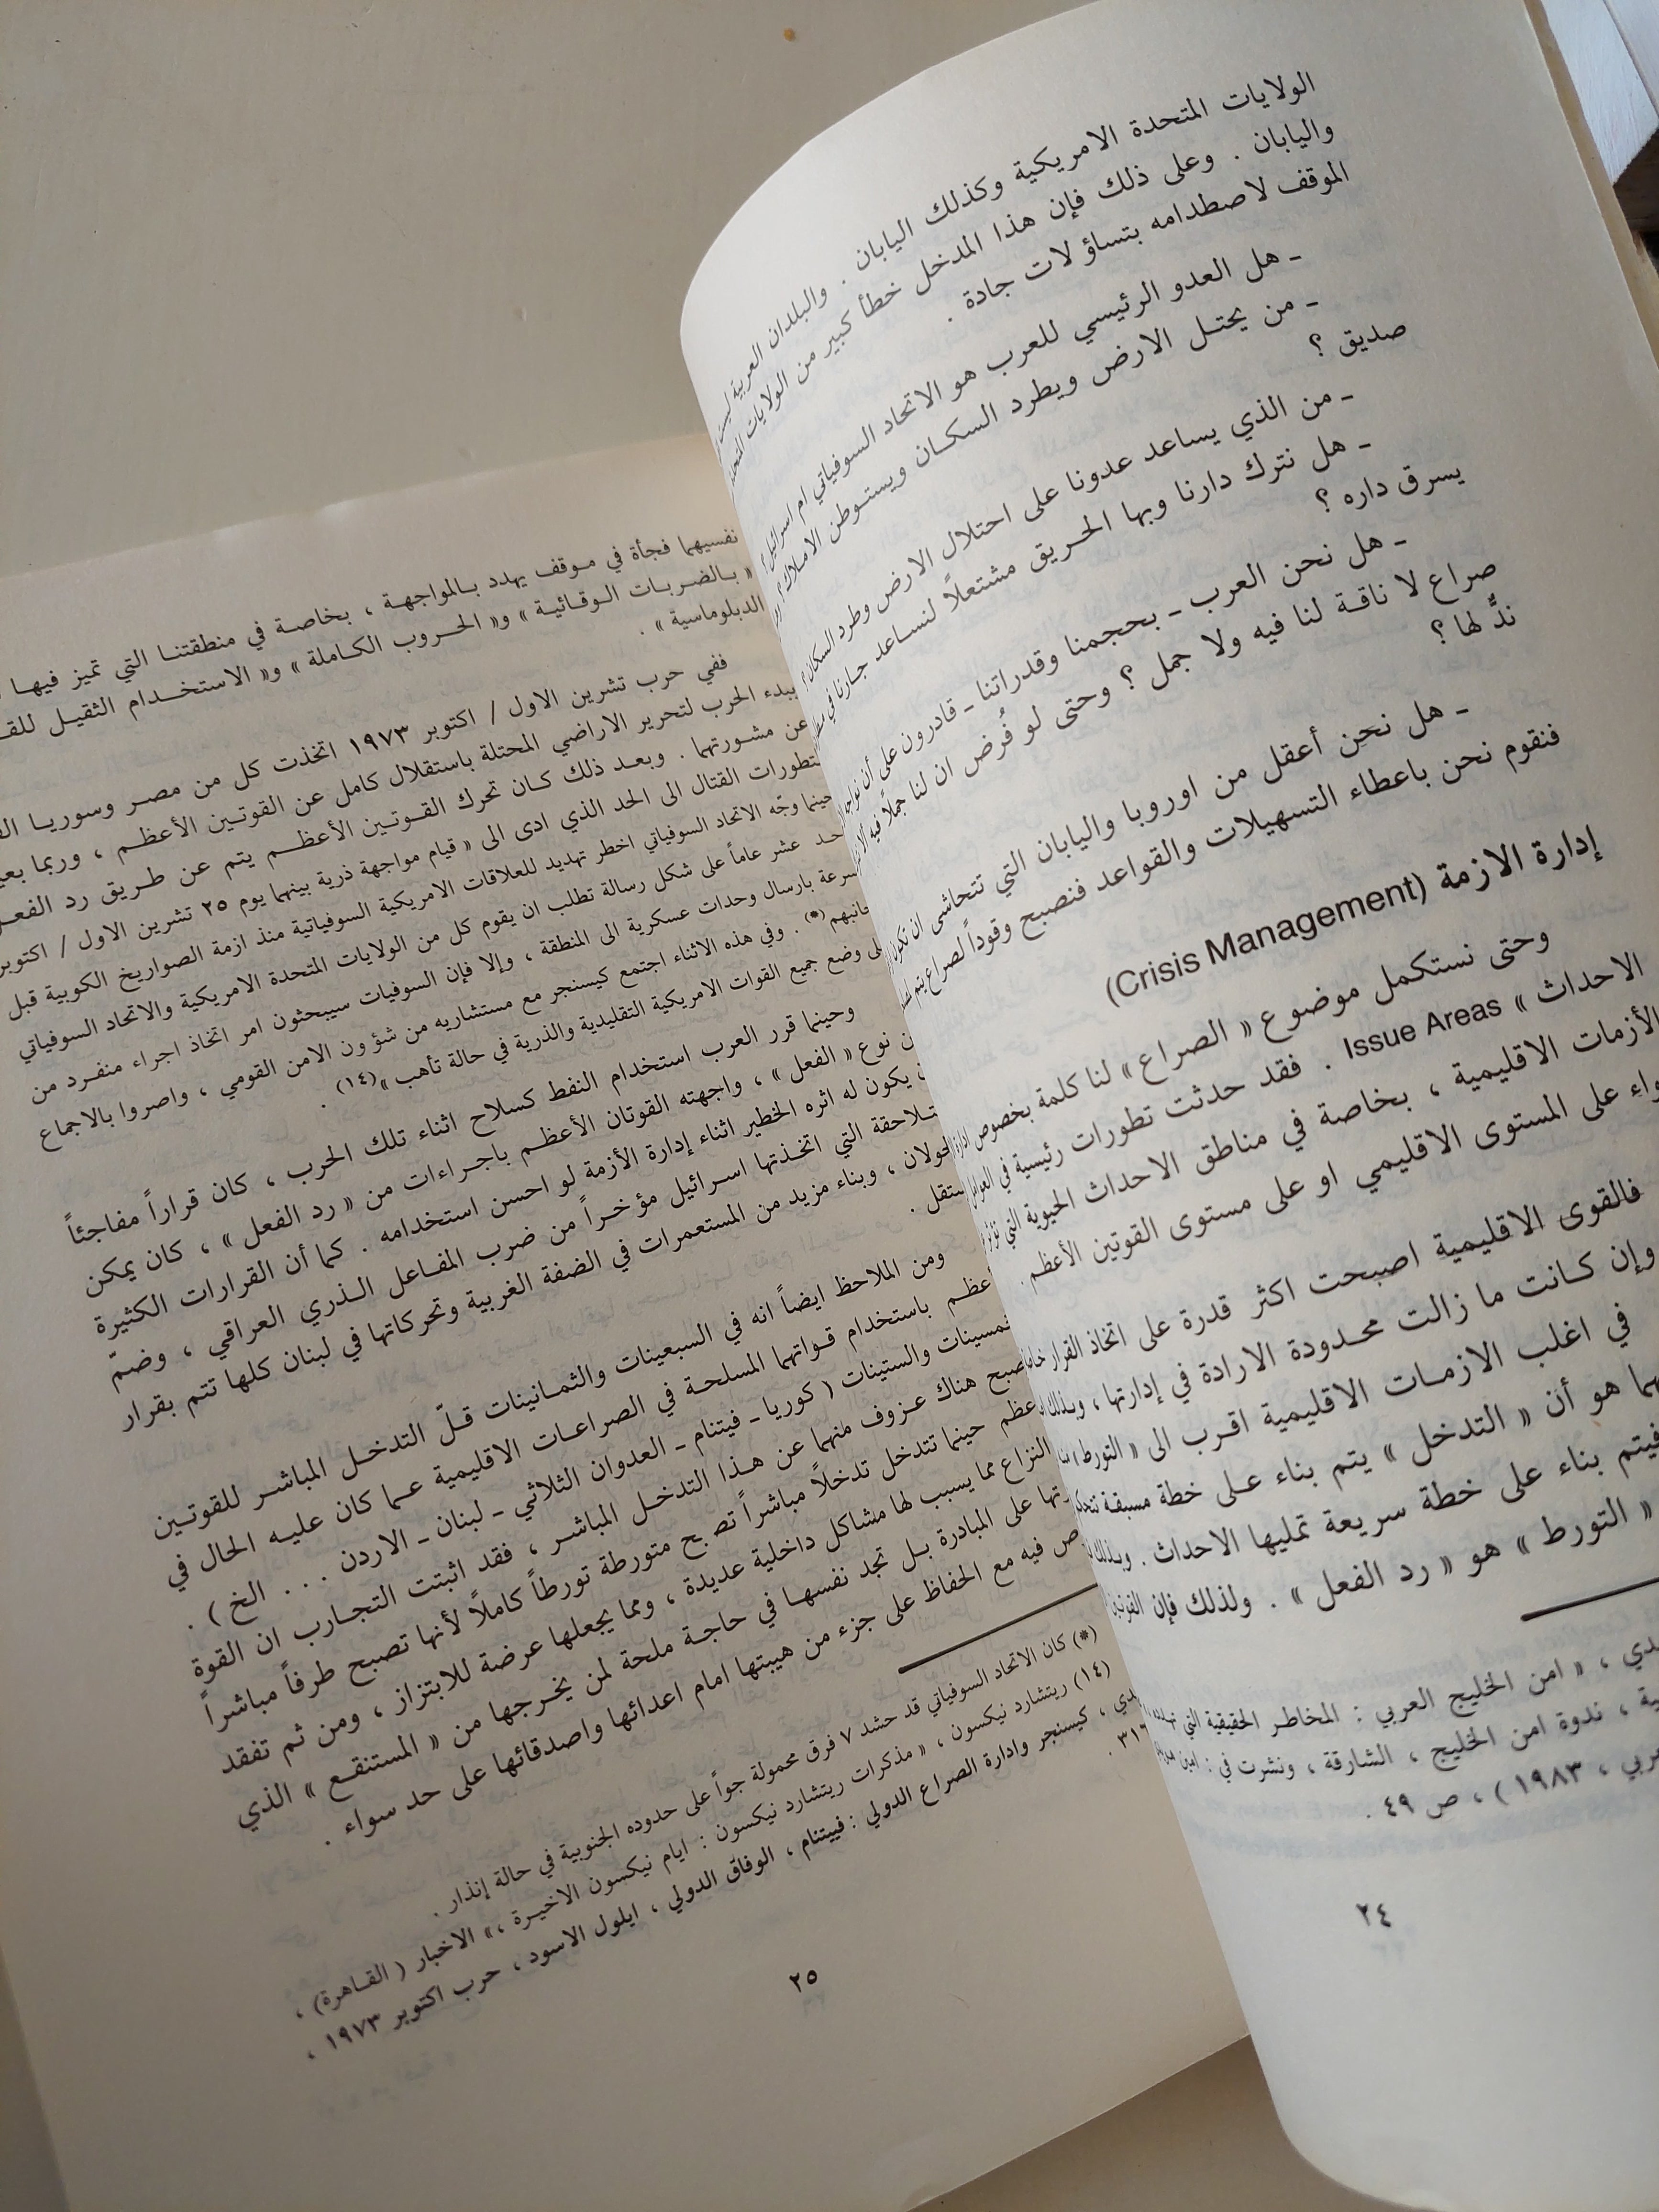 الولايات المتحدة الامريكية وكذلك اليابان . والبلدان العربية ليست
واليابان . وعلى ذلك فإن هذا المدخل خطأ كبير من الولايات المتحدة
الموقف لاصطدامه بتساؤلات جادة .
ـ هل العدو الرئيسي للعرب هو الاتحاد السوفياتي ام اسرائيل ؟
ـ من يحتل الارض ويطرد السكان ويستوطن الاملاك ؟
صديق ؟
ـ من الذي يساعد عدونا على احتلال الارض وطرد السكان ؟
ـ هل نترك دارنا وبها الحريق مشتعلاً لنساعد جارنا في
يسرق داره ؟
ـ هل نحن العرب ـ بحجمنا وقدراتنا ـ قادرون على أن
صراع لا ناقة لنا فيه ولا جمل ؟ وحتى لو فُرض ان لنا جملاً فيه
ندٌّ لها ؟
ـ هل نحن أعقل من اوروبا واليابان التي تتحاشى ان تكون
فنقوم نحن باعطاء التسهيلات والقواعد فنصبح وقوداً لصراع يتم
إدارة الازمة (Crisis Management)
وحتى نستكمل موضوع « الصراع » لنا كلمة بخصوص
الاحداث » Issue Areas . فقد حدثت تطورات رئيسية في
الأزمات الاقليمية ، بخاصة في مناطق الاحداث الحيوية التي
على المستوى الاقليمي او على مستوى القوتين الأعظم .
فالقوى الاقليمية اصبحت اكثر قدرة على اتخاذ القرار
وإن كانت ما زالت محدودة الارادة في إدارتها ، وبذلك
في اغلب الازمات الاقليمية اقرب الى « التورط »
هو أن « التدخل » يتم بناء على خطة مسبقة
فيتم بناء على خطة سريعة تمليها الاحداث . وبذلك
« التورط » هو « رد الفعل » . ولذلك فإن
، « امن الخليج العربي : المخاطر الحقيقية التي
، ندوة امن الخليج ، الشارقة ، ونشرت في :
، ١٩٨٣ ) ، ص ٤٩ .
٢٤
نفسيهما فجأة في موقف يهدد بالمواجهة ، بخاصة في منطقتنا التي تميز فيها
« بالضربات الوقائية » و« الحروب الكاملة » و« الاستخدام الثقيل
الدبلوماسية » .
ففي حرب تشرين الاول / اكتوبر ١٩٧٣ اتخذت كل من مصر وسوريا
ببدء الحرب لتحرير الاراضي المحتلة باستقلال كامل عن القوتين الأعظم ، وربما
عن مشورتهما . وبعد ذلك كان تحرك القوتين الأعظم يتم عن طريق رد الفعل
لتطورات القتال الى الحد الذي ادى الى « قيام مواجهة ذرية بينهما يوم ٢٥ تشرين الاول / اكتوبر
حينما وجّه الاتحاد السوفياتي اخطر تهديد للعلاقات الامريكية السوفياتية منذ ازمة الصواريخ الكوبية قبل
عشر عاماً على شكل رسالة تطلب ان يقوم كل من الولايات المتحدة الامريكية والاتحاد السوفياتي
بارسال وحدات عسكرية الى المنطقة ، وإلا فإن السوفيات سيبحثون امر اتخاذ اجراء منفرد من
جانبهم (*) . وفي هذه الاثناء اجتمع كيسنجر مع مستشاريه من شؤون الامن القومي ، واصروا بالاجماع
وضع جميع القوات الامريكية التقليدية والذرية في حالة تأهب »(١٤) .
وحينما قرر العرب استخدام النفط كسلاح اثناء تلك الحرب ، كان قراراً مفاجئاً
نوع « الفعل » ، واجهته القوتان الأعظم باجراءات من « رد الفعل » ، كان يمكن
يكون له اثره الخطير اثناء إدارة الأزمة لو احسن استخدامه . كما أن القرارات الكثيرة
التي اتخذتها اسرائيل مؤخراً من ضرب المفاعل الذري العراقي ، وضمّ
، وبناء مزيد من المستعمرات في الضفة الغربية وتحركاتها في لبنان كلها تتم بقرار
.
ومن الملاحظ ايضاً انه في السبعينات والثمانينات قلّ التدخل المباشر للقوتين
باستخدام قواتهما المسلحة في الصراعات الاقليمية عما كان عليه الحال في
والستينات ( كوريا ـ فيتنام ـ العدوان الثلاثي ـ لبنان ـ الاردن . . . الخ ) .
هناك عزوف منهما عن هذا التدخل المباشر ، فقد اثبتت التجارب ان القوة
حينما تتدخل تدخلاً مباشراً تصبح متورطة تورطاً كاملاً لأنها تصبح طرفاً مباشراً
النزاع مما يسبب لها مشاكل داخلية عديدة ، ومما يجعلها عرضة للابتزاز ، ومن ثم تفقد
على المبادرة بل تجد نفسها في حاجة ملحة لمن يخرجها من « المستنقع » الذي
فيه مع الحفاظ على جزء من هيبتها امام اعدائها واصدقائها على حد سواء .
(*) كان الاتحاد السوفياتي قد حشد ٧ فرق محمولة جواً على حدوده الجنوبية في حالة إنذار .
(١٤) ريتشارد نيكسون ، « مذكرات ريتشارد نيكسون : ايام نيكسون الاخيرة ، » الاخبار ( القاهرة) ،
، كيسنجر وادارة الصراع الدولي : فييتنام ، الوفاق الدولي ، ايلول الاسود ، حرب اكتوبر ١٩٧٣ ،
.
٢٥